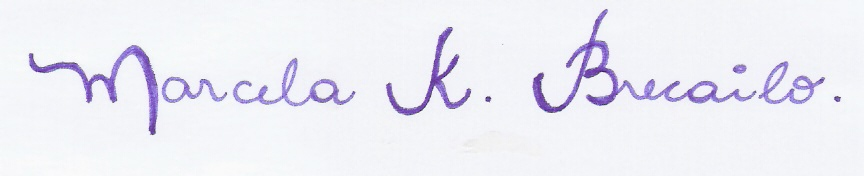 Marcela K. Brecailo.